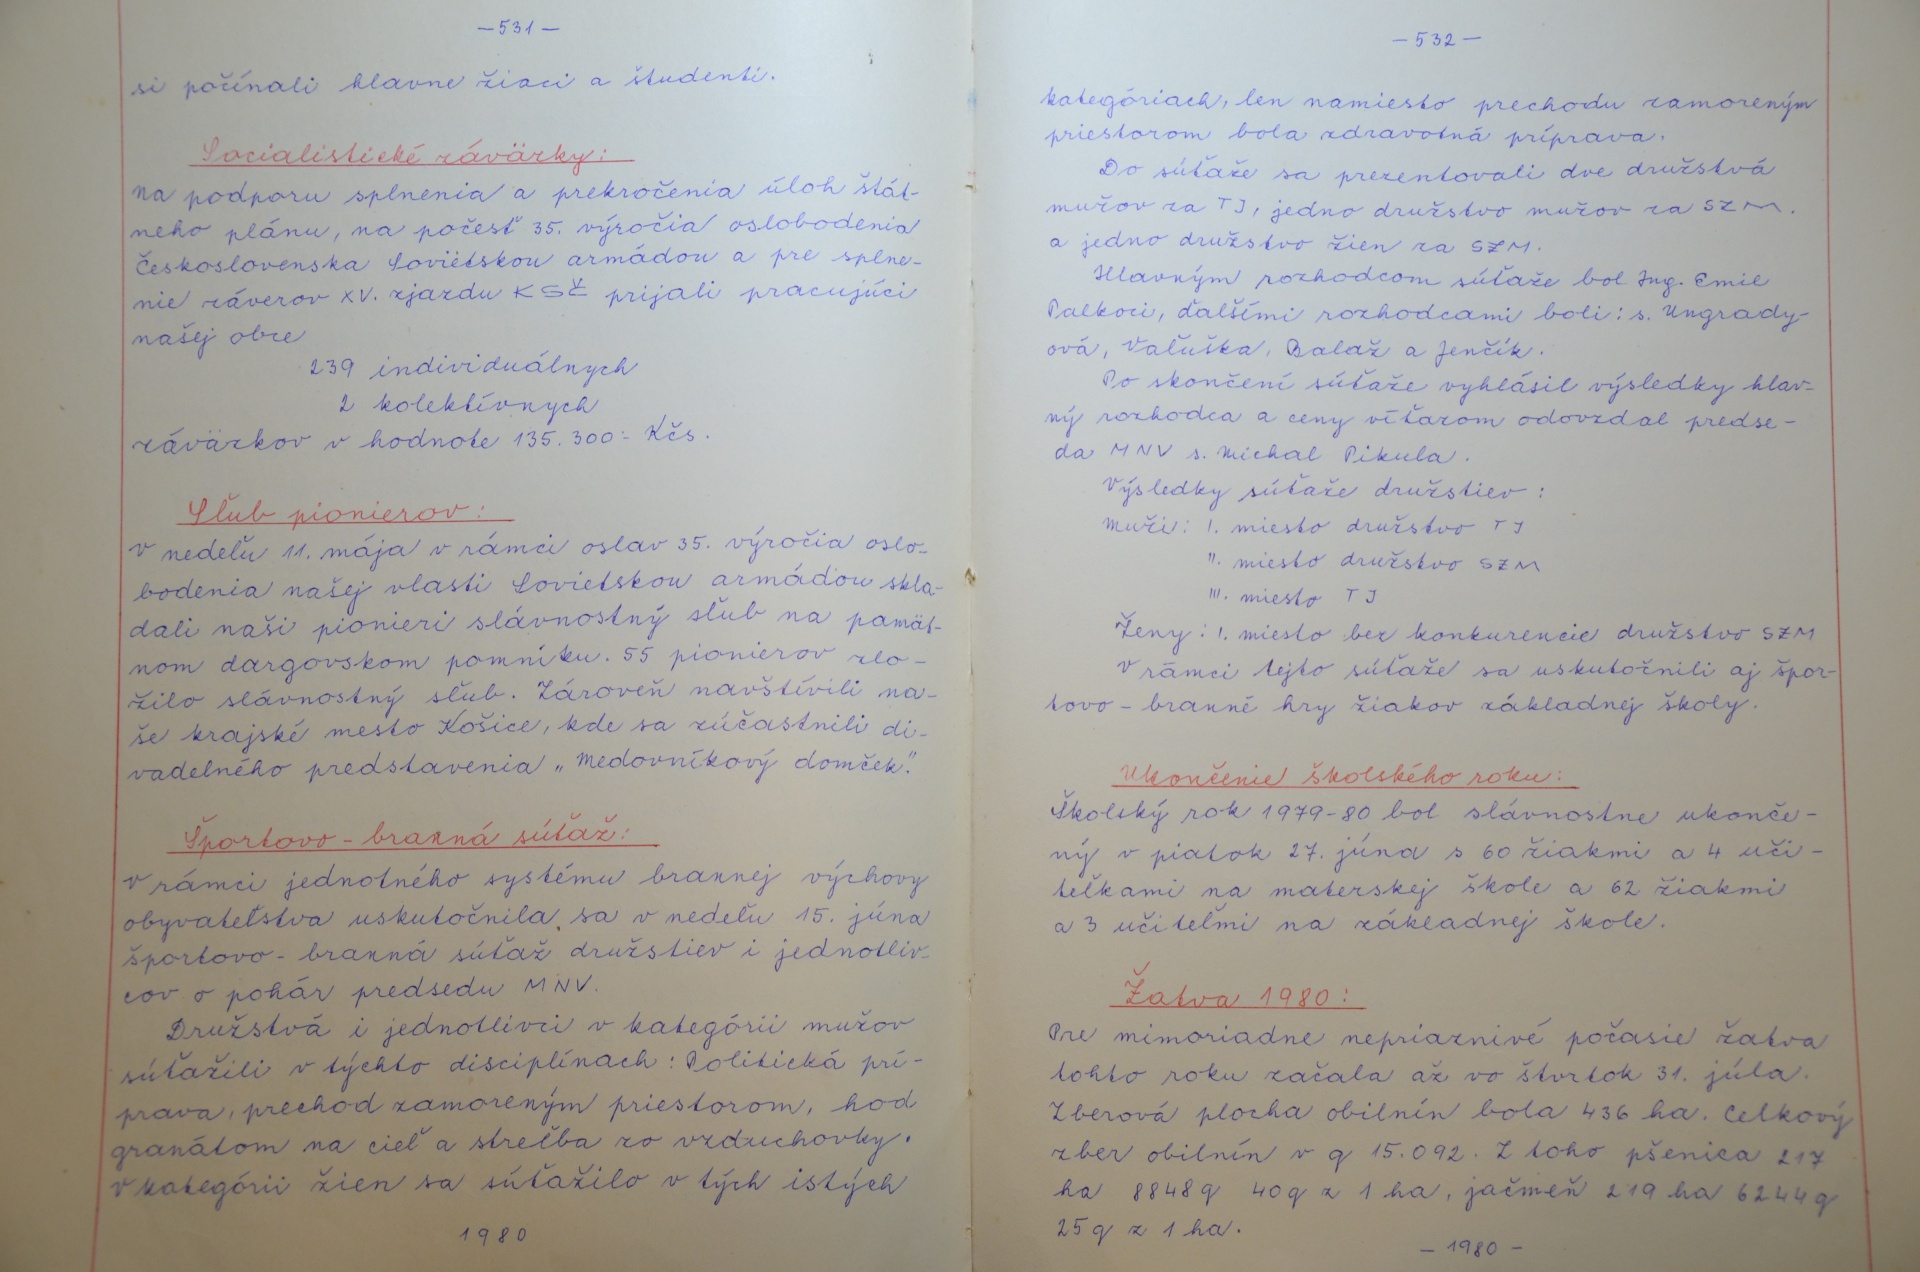 -531-
si počínali hlavne žiaci a študenti.
Socialistické záväzky:
Na podporu splnenia a prekročenia úloh štát-
neho plánu, na počesť 35. výročia oslobodenia
Československa Sovietskou armádou a pre splne-
nie záverov XV. zjazdu KSČ prijali pracujúci
našej obce
239 individuálnych
2 kolektívnych
záväzkov v hodnote 135.300.- Kčs.
Sľub pionierov:
V nedeľu 11. mája v rámci osláv 35. výročia oslo-
bodenia našej vlasti Sovietskou armádou skla-
dali naši pionieri slávnostný sľub na pamät-
nom dargovskom pomníku. 55 pionierov zlo-
žilo slávnostný sľub. Zároveň navštívili na-
še krajské mesto Košice, kde sa zúčastnili di-
vadelného predstavenia „Medovníkový domček."
Športovo - branná súťaž:
V rámci jednotného systému brannej výchovy
obyvateľstva uskutočnila sa v nedeľu 15. júna
športovo - branná súťaž družstiev i jednotliv-
cov o pohár predsedu MNV.
Družstvá i jednotlivci v kategórii mužov
súťažili v týchto disciplínach: Politická prí-
prava, prechod zamoreným priestorom, hod
granátom na cieľ a streľba zo vzduchovky.
V kategórii žien sa súťažilo v tých istých
1980
-532-
kategóriach, len namiesto prechodu zamoreným
priestorom bola zdravotná príprava.
Do súťaže sa prezentovali dve družstvá
mužov za TJ, jedno družstvo mužov za SZM.
a jedno družstvo žien za SZM.
Hlavným rozhodcom súťaže bol Ing. Emil
Palkoci, ďalšími rozhodcami boli: s. Ungrady-
ová, Vaľuška, Balaž a Jenčík.
Po skončení súťaže vyhlásil výsledky hlav-
ný rozhodca a ceny víťazom odovzdal predse-
da MNV s. Michal Pikula.
Výsledky súťaže družstiev:
Muži: I. miesto družstvo TJ
II. miesto družstvo SZM
III. miesto TJ
Ženy: I. miesto bez konkurencie družstvo SZM
V rámci tejto súťaže sa uskutočnili aj špor-
tovo - branné hry žiakov základnej školy.
Ukončenie školského roku:
Školský rok 1979-80 bol slávnostne ukonče-
ný v piatok 27. júna s 60 žiakmi a 4 uči-
teľkami na materskej škole a 62 žiakmi
a 3 učiteľmi na základnej škole.
Žatva 1980:
Pre mimoriadne nepriaznivé počasie žatva
tohto roku začala až vo štvrtok 31. júla.
Zberová plocha obilnín bola 436 ha. Celkový
zber obilnín v q 15.092. Z toho pšenica 217
ha 8848q 40q z 1 ha, jačmeň 219 ha 6244q
25q z 1 ha.
- 1980 -